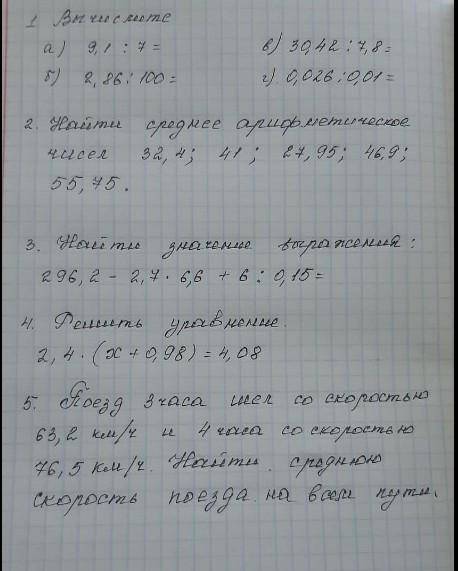 1 Вычислите
а) 9,1 : 7 = в) 30,42 : 7,8 =
б) 2,86 : 100 = г) 0,026 : 0,01 =
2. Найти среднее арифметическое
чисел 32,4; 41; 27,95; 46,9;
55,75.
3. Найти значение выражения:
296,2 - 2,7 · 6,6 + 6 : 0,15 =
4. Решить уравнение.
2,4 · (x + 0,98) = 4,08
5. Поезд 3 часа шел со скоростью
63,2 км/ч и 4 часа со скоростью
76,5 км/ч. Найти среднюю
скорость поезда на всем пути.